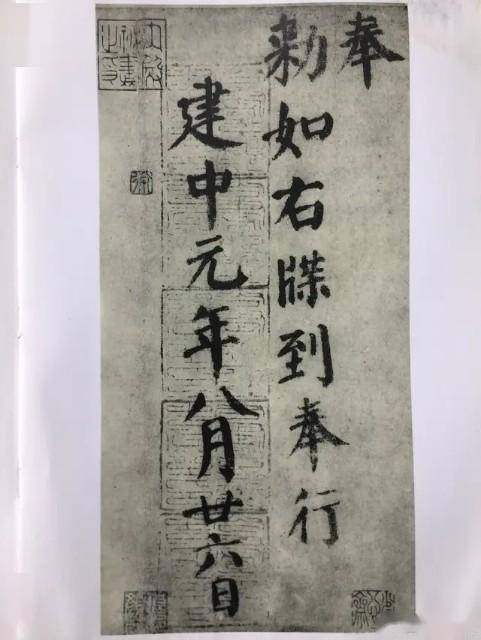 奉
勅如右牒到奉行
建中元年八月廿六日